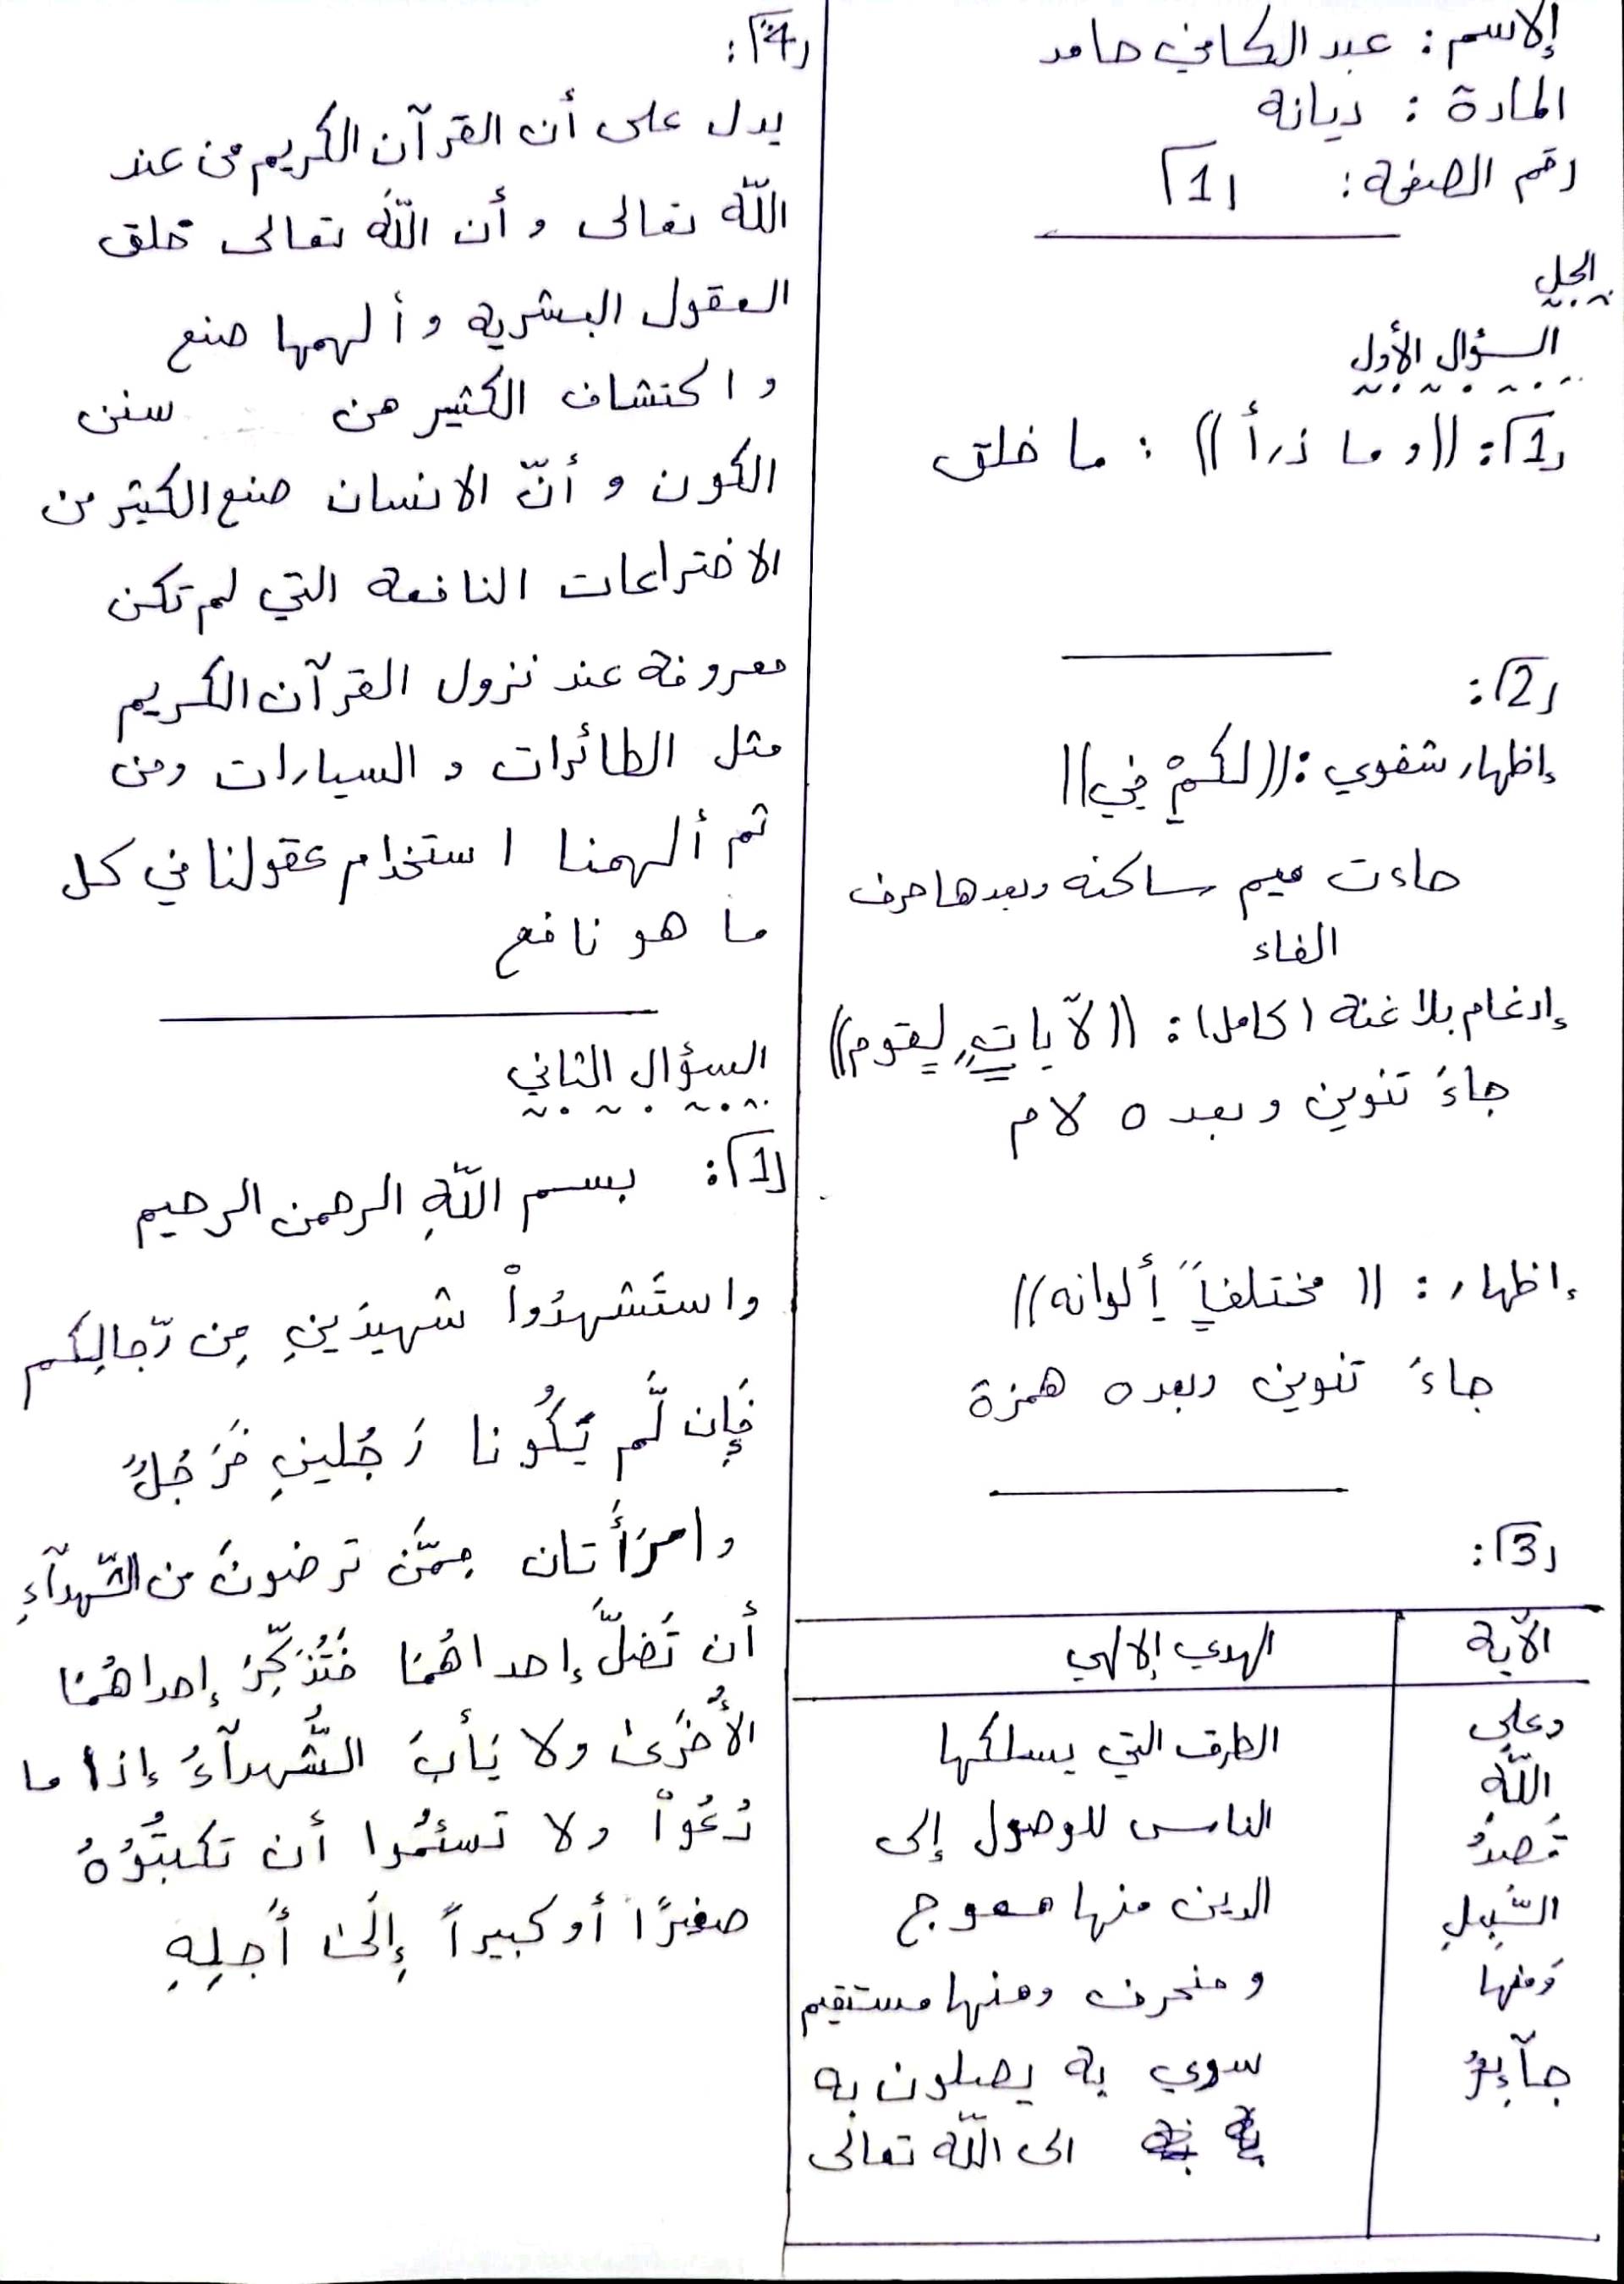 الإسم : عبد الكافي حامد
المادة : ديانه
رقم الصفحة : (1)
الحل
السؤال الأول
(1): ((وما ذرأ)) : ما خلق
(2):
إظهار شفوي : ((لكمْ في))
جاءت ميم ساكنه وبعدها حرف
الفاء
إدغام بلا غنه (كامل) : ((لآياتٍ لقوم))
جاءَ تنوين وبعده لام
إظهار : ((مختلفاً ألوانه))
جاءَ تنوين وبعده همزة
(3):
الآية
الهدي الإلهي
وعلى
اللّهِ
قَصدُ
السَّبيلِ
وَمنها
جآئِرٌ
الطرق التي يسلكها
الناس للوصول إلى
الدين منها معوج
و منحرف ومنها مستقيم
سوي به يصلون به
الى اللّه تعالى
(4):
يدل على أن القرآن الكريم من عند
اللّه تعالى و أن اللّه تعالى خلق
العقول البشريه و ألهمها صنع
و اكتشاف الكثير من سنن
الكون و أنّ الانسان صنع الكثير من
الاختراعات النافعه التي لم تكن
معروفه عند نزول القرآن الكريم
مثل الطائرات و السيارات ومن
ثم ألهمنا استخدام عقولنا في كل
ما هو نافع
السؤال الثاني
(1): بسم اللّهِ الرحمن الرحيم
واستَشهدُواْ شهيدَينِ مِن رّجالِكم
فَإِن لَّم يَكُونا رَجُلينِ فَرَجُلٌ
وامرَأَتان مِمَّن ترضونَ من الشّهدآءِ
أن تَضلَّ إحداهُمَا فَتُذَكِّرَ إحداهُمَا
الأُخرَىٰ ولا يَأبَ الشُّهدآءُ إذا ما
دُعُواْ ولا تسئمُوا أن تكتبُوُهُ
صغيرًا أو كبيراً إِلَىٰ أَجلِهِ